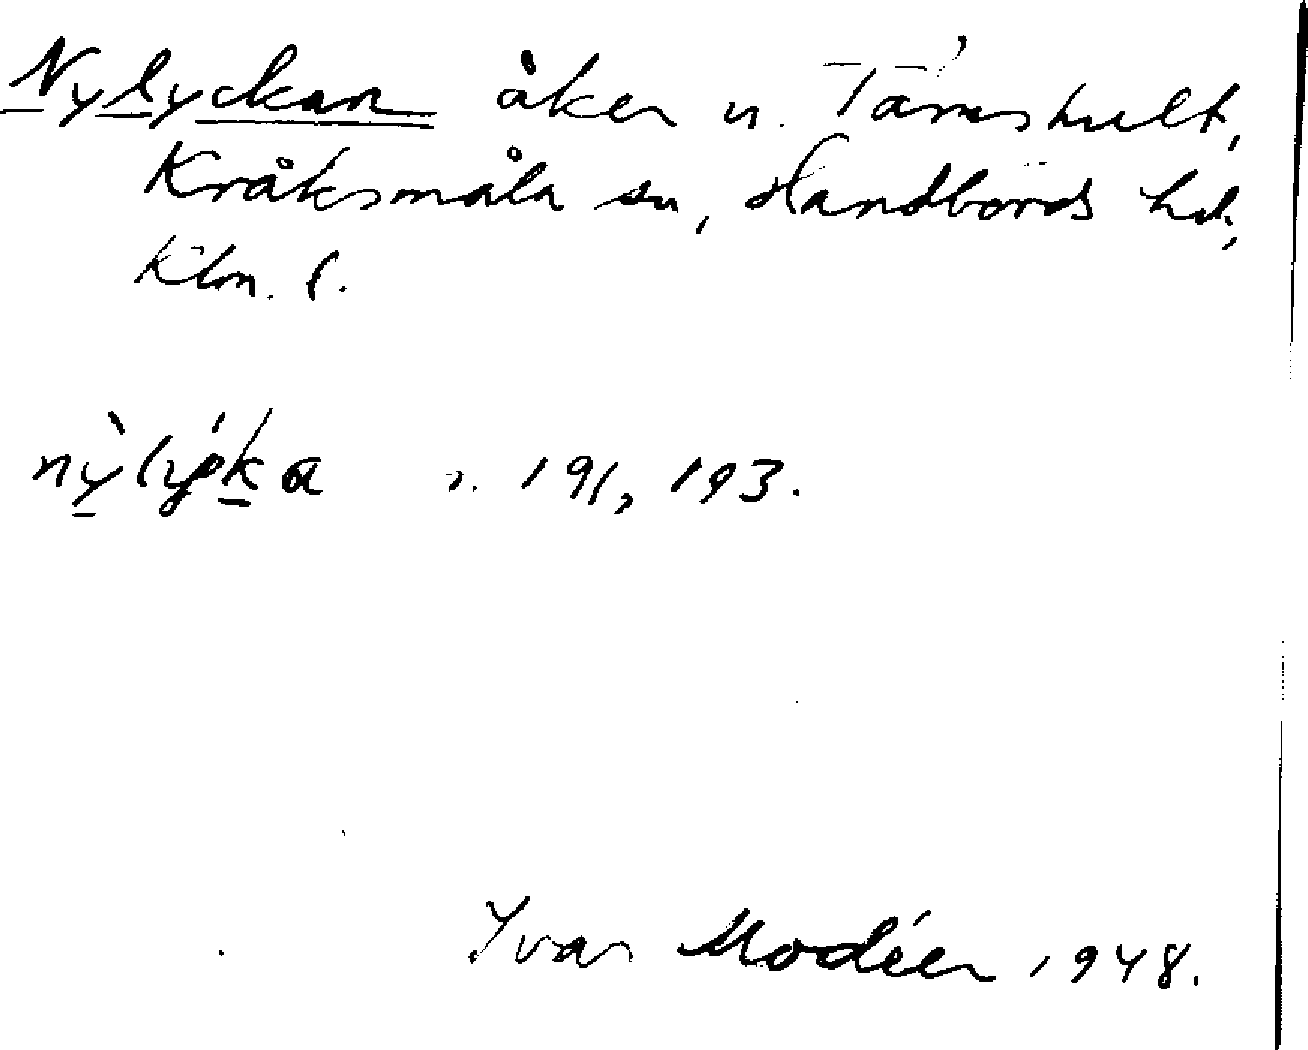 Nylyckan åker n. Tämshult,
Kråksmåla sn, Handbörds hd,
Klm. l.
nỳlýka n. 191, 193.
Ivar Modéer 1948.